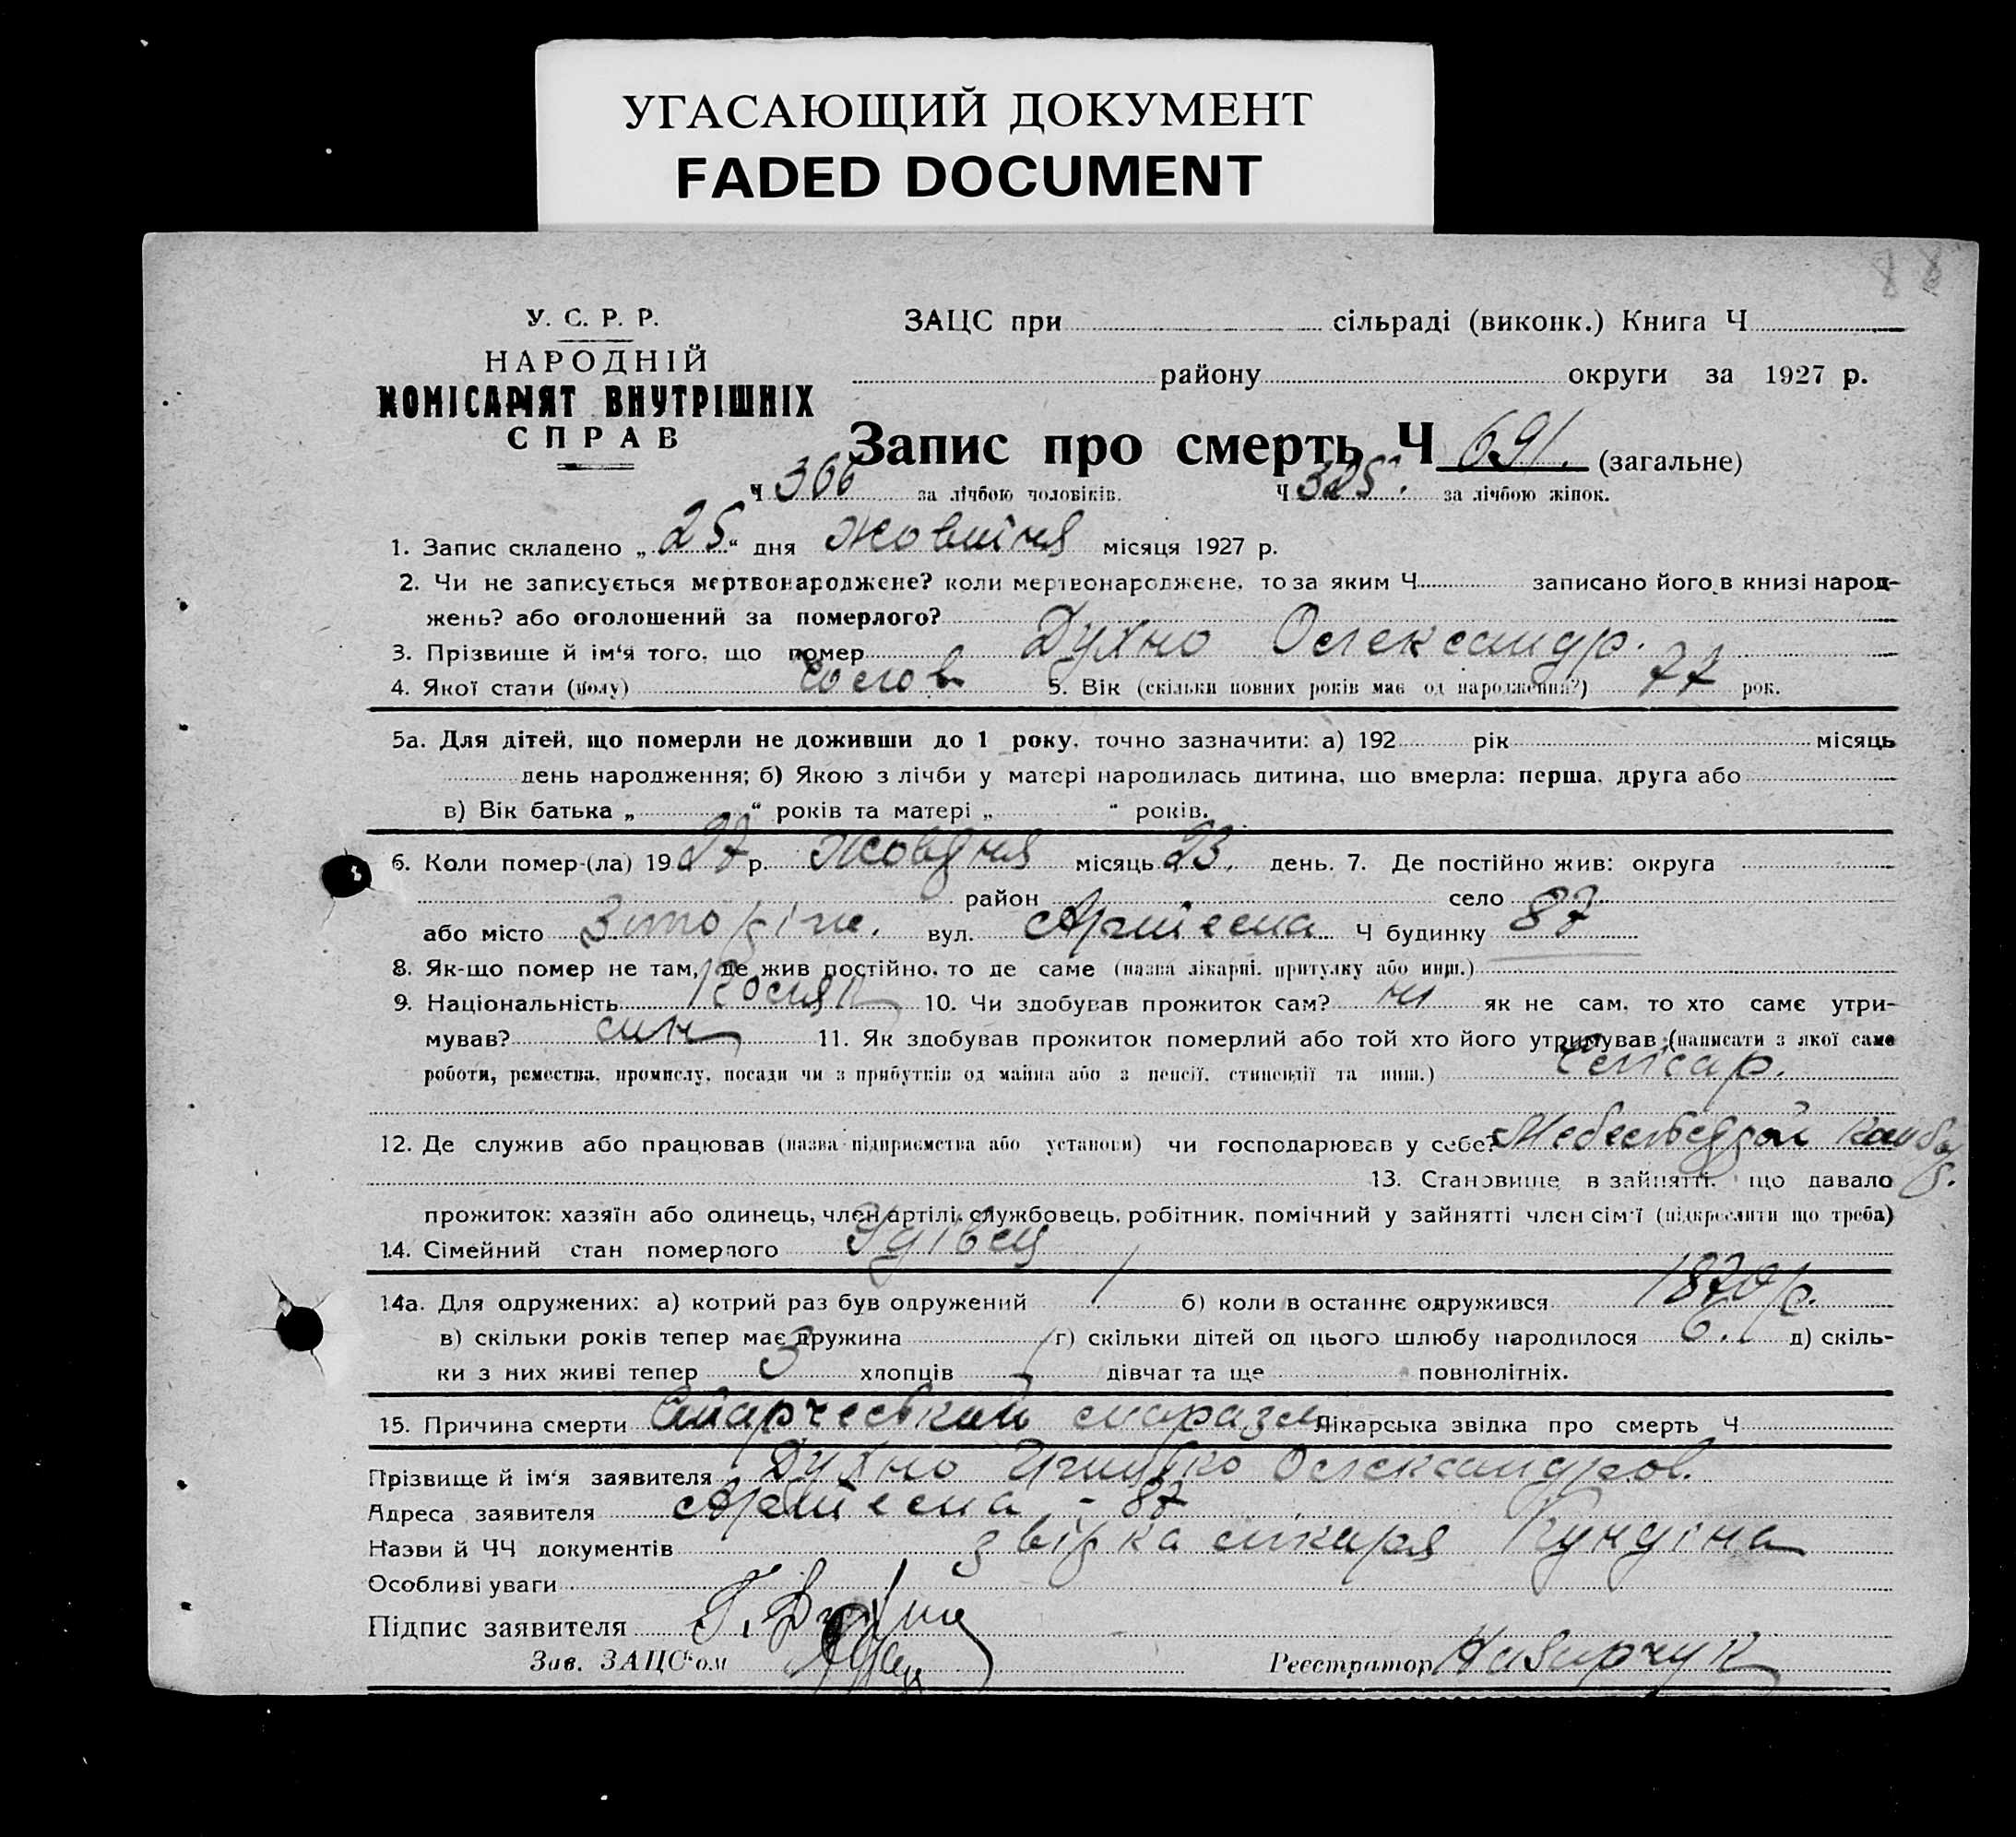 УГАСАЮЩИЙ ДОКУМЕНТ
FADED DOCUMENT
88
У. С. Р. Р.
НАРОДНІЙ
КОМІСАРІЯТ ВНУТРІШНІХ
СПРАВ
ЗАЦС при сільраді (виконк.) Книга Ч
району округи за 1927 р.
Запис про смерть Ч 691. (загальне)
Ч 366 за лічбою чоловіків. Ч 325. за лічбою жінок.
1. Запис складено „25“ дня жовтня місяця 1927 р.
2. Чи не записується мертвонароджене? коли мертвонароджене, то за яким Ч записано його в книзі народ-
жень? або оголошений за померлого?
3. Прізвище й ім‘я того, що помер Духно Олександр.
4. Якої стати (полу) чолов 5. Вік (скільки повних років має од народження?) 77 рок.
5а. Для дітей, що померли не доживши до 1 року, точно зазначити: а) 192 рік місяць
день народження; б) Якою з лічби у матері народилась дитина, що вмерла: перша, друга або
в) Вік батька „ “ років та матері „ “ років.
6. Коли помер-(ла) 1927 р. жовтня місяць 23. день. 7. Де постійно жив: округа
район село
або місто вул. Артьема Ч будинку 87
8. Як-що помер не там, де жив постійно, то де саме (назва лікарні, притулку або инш.)
9. Національність Росіян 10. Чи здобував прожиток сам? ні як не сам, то хто саме утри-
мував? син 11. Як здобував прожиток померлий або той хто його утримував (написати з якої саме
роботи, ремества, промислу, посади чи з прибутків од майна або з пенсії, стипендії та инш.) слісар.
12. Де служив або працював (назва підприємства або установи) чи господарював у себе?
13. Становище в зайнятті, що давало
прожиток: хазяїн або одинець, член артілі, службовець, робітник, помічний у зайнятті член сім‘ї (підкреслити що треба)
14. Сімейний стан померлого Удівец
14а. Для одружених: а) котрий раз був одружений 1 б) коли в останнє одружився 1870 р.
в) скільки років тепер має дружина г) скільки дітей од цього шлюбу народилося 6. д) скіль-
ки з них живі тепер 3 хлопців дівчат та ще повнолітніх.
15. Причина смерти Старческий маразм Лікарська звідка про смерть Ч
Прізвище й ім‘я заявителя Духно Олександров.
Адреса заявителя Артьема - 87
Назви й ЧЧ документів звідка лікаря
Особливі уваги
Підпис заявителя
Зав. ЗАЦС‘ом Реєстратор Назарчук